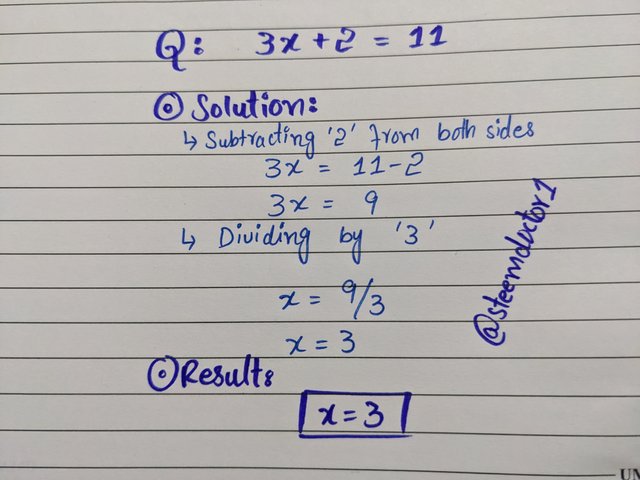 Q: 3x + 2 = 11
Solution:
↳ Subtracting '2' from both sides
3x = 11-2
3x = 9
↳ Dividing by '3'
x = 9/3
x = 3
@steemdoctor1
Result:
x = 3